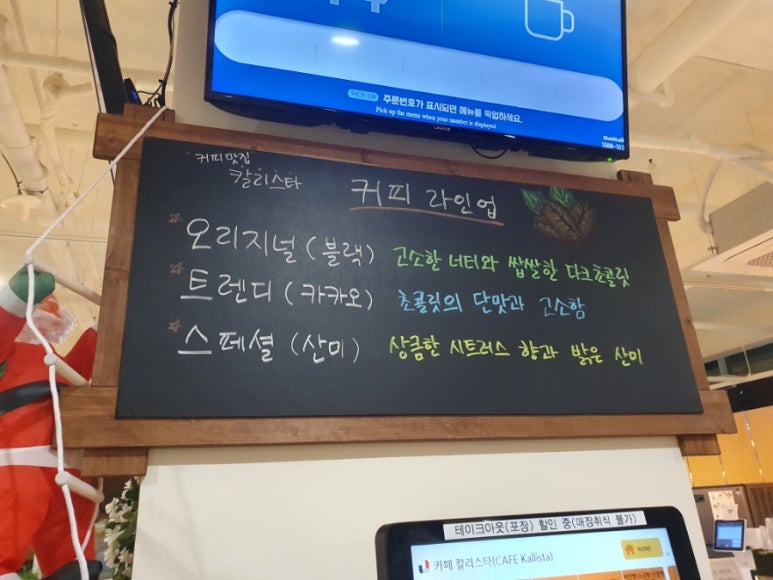 PICK UP 주문번호가 표시되면 메뉴를 픽업하세요.
Pick up the menu when your number is displayed
커피맛집
칼리스타
커피 라인업
오리지널 (블랙) 고소한 너티와 쌉쌀한 다크초콜릿
트렌디 (카카오) 초콜릿의 단맛과 고소함
스페셜 (산미) 상큼한 시트러스 향과 밝은 산미
테이크아웃(포장) 할인 중(매장취식 불가)
카페 칼리스타(CAFE Kallista)
HOME